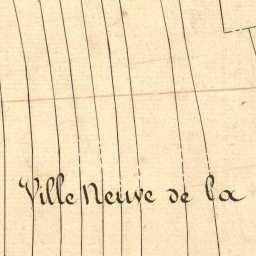 Ville Neuve de la